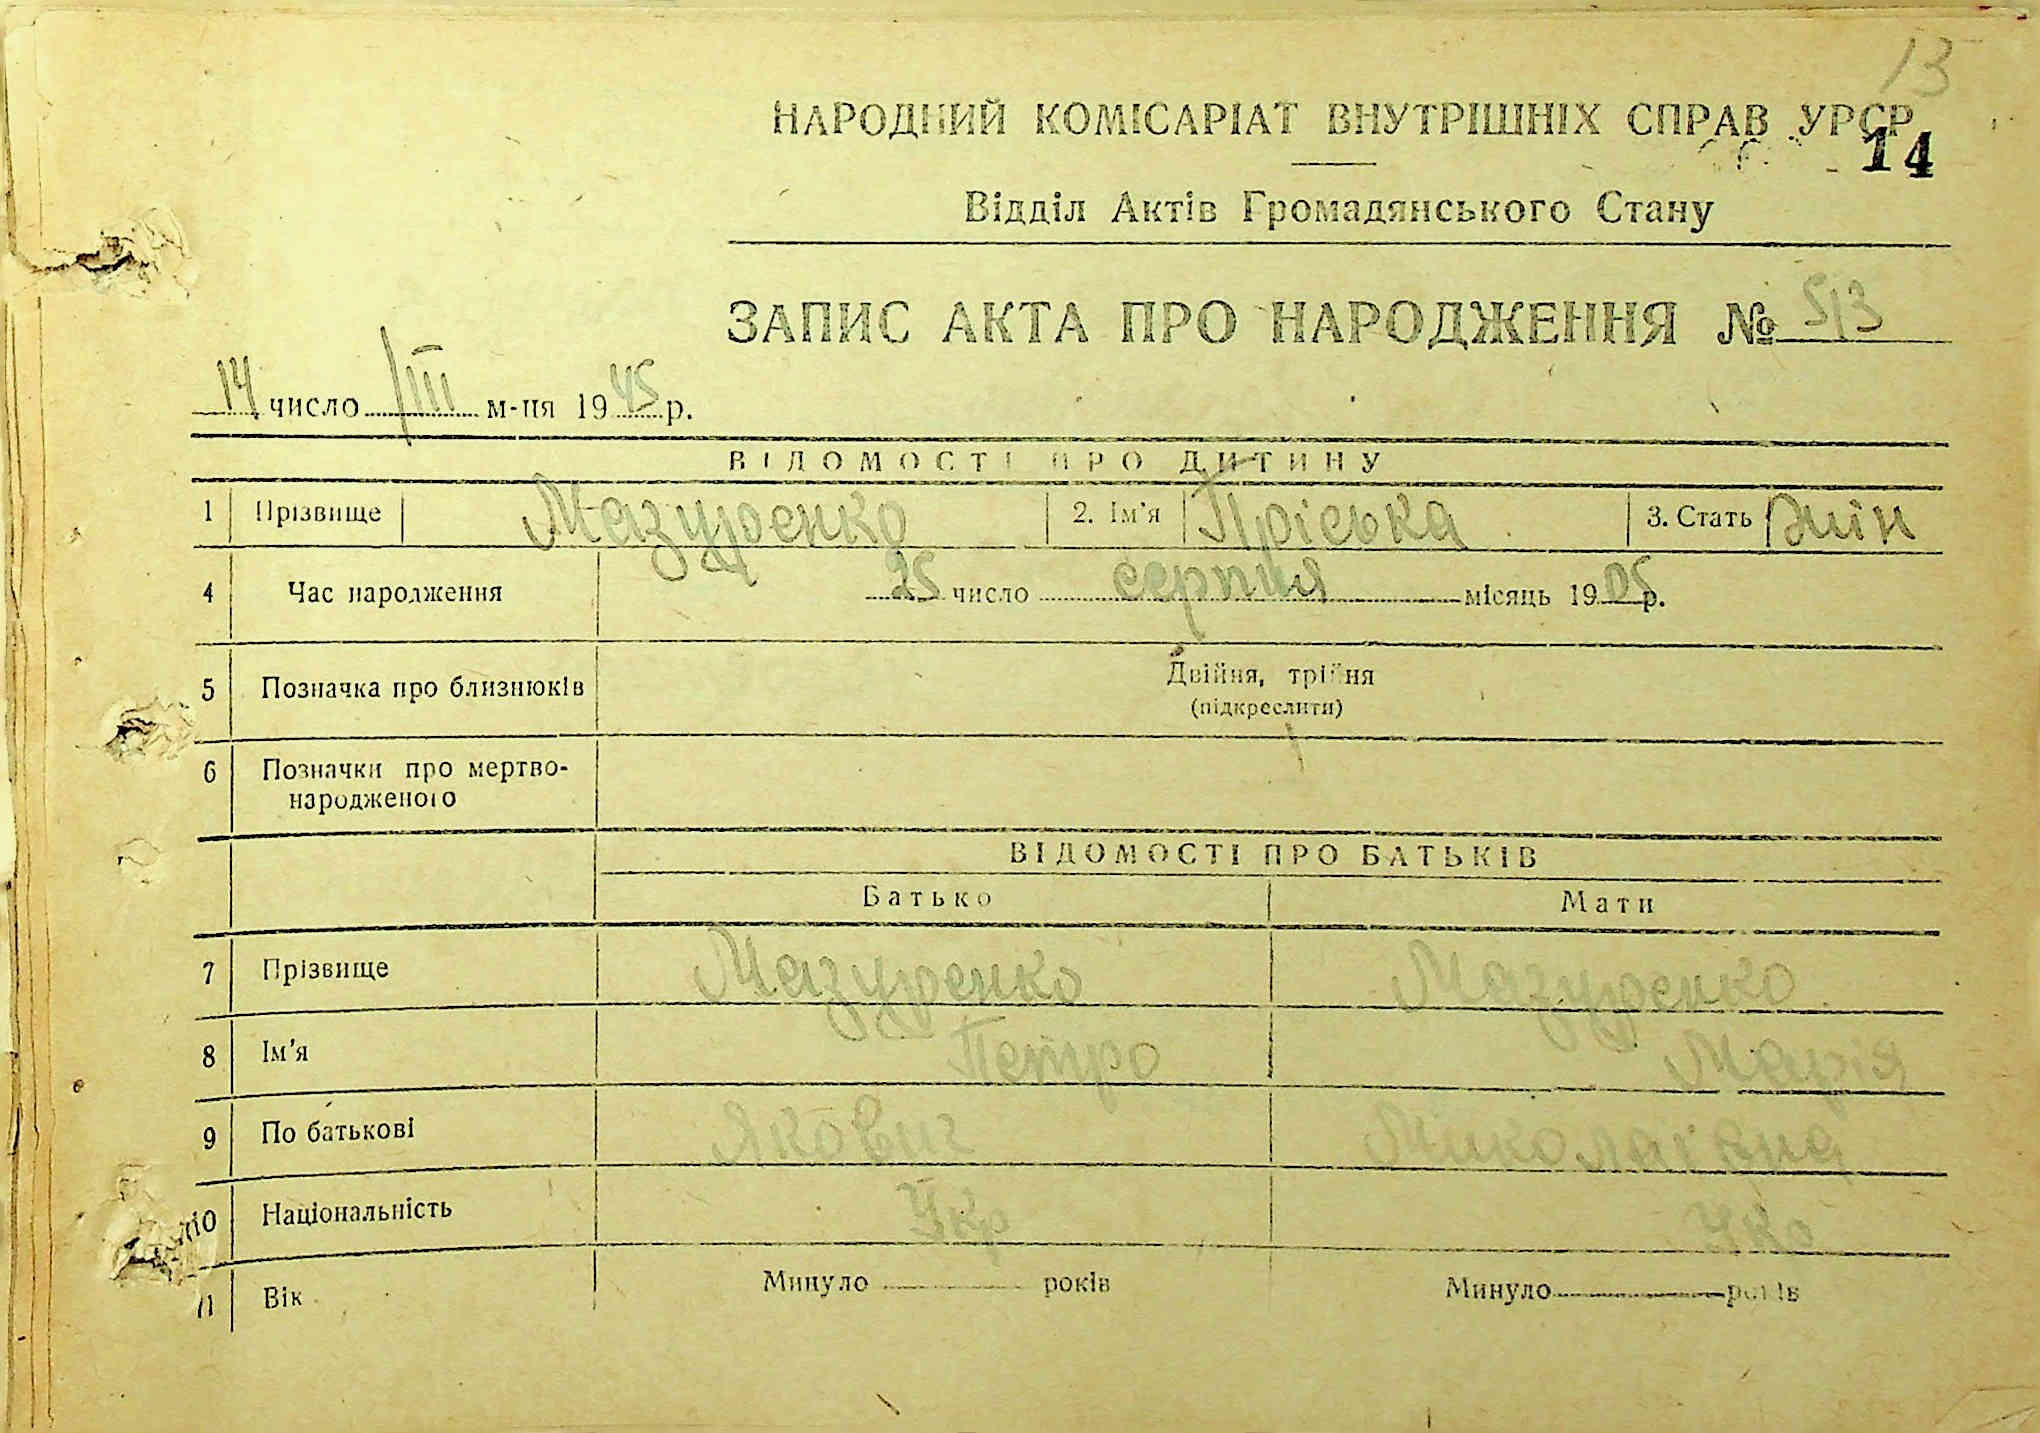 13
НАРОДНИЙ КОМІСАРІАТ ВНУТРІШНІХ СПРАВ УРСР
14
Відділ Актів Громадянського Стану
ЗАПИС АКТА ПРО НАРОДЖЕННЯ № 513
14 число /III м-ця 1945 р.
ВІДОМОСТІ ПРО ДИТИНУ
1 Прізвище Мазуренко 2. Ім'я Пріська 3. Стать жін
4 Час народження 25 число серпня місяць 1905 р.
5 Позначка про близнюків Двійня, трійня
(підкреслити)
6 Позначки про мертво-
народженого
ВІДОМОСТІ ПРО БАТЬКІВ
Батько Мати
7 Прізвище Мазуренко Мазуренко
8 Ім'я Петро Марія
9 По батькові Якович Миколаївна
10 Національність Укр Укр
11 Вік Минуло років Минуло років